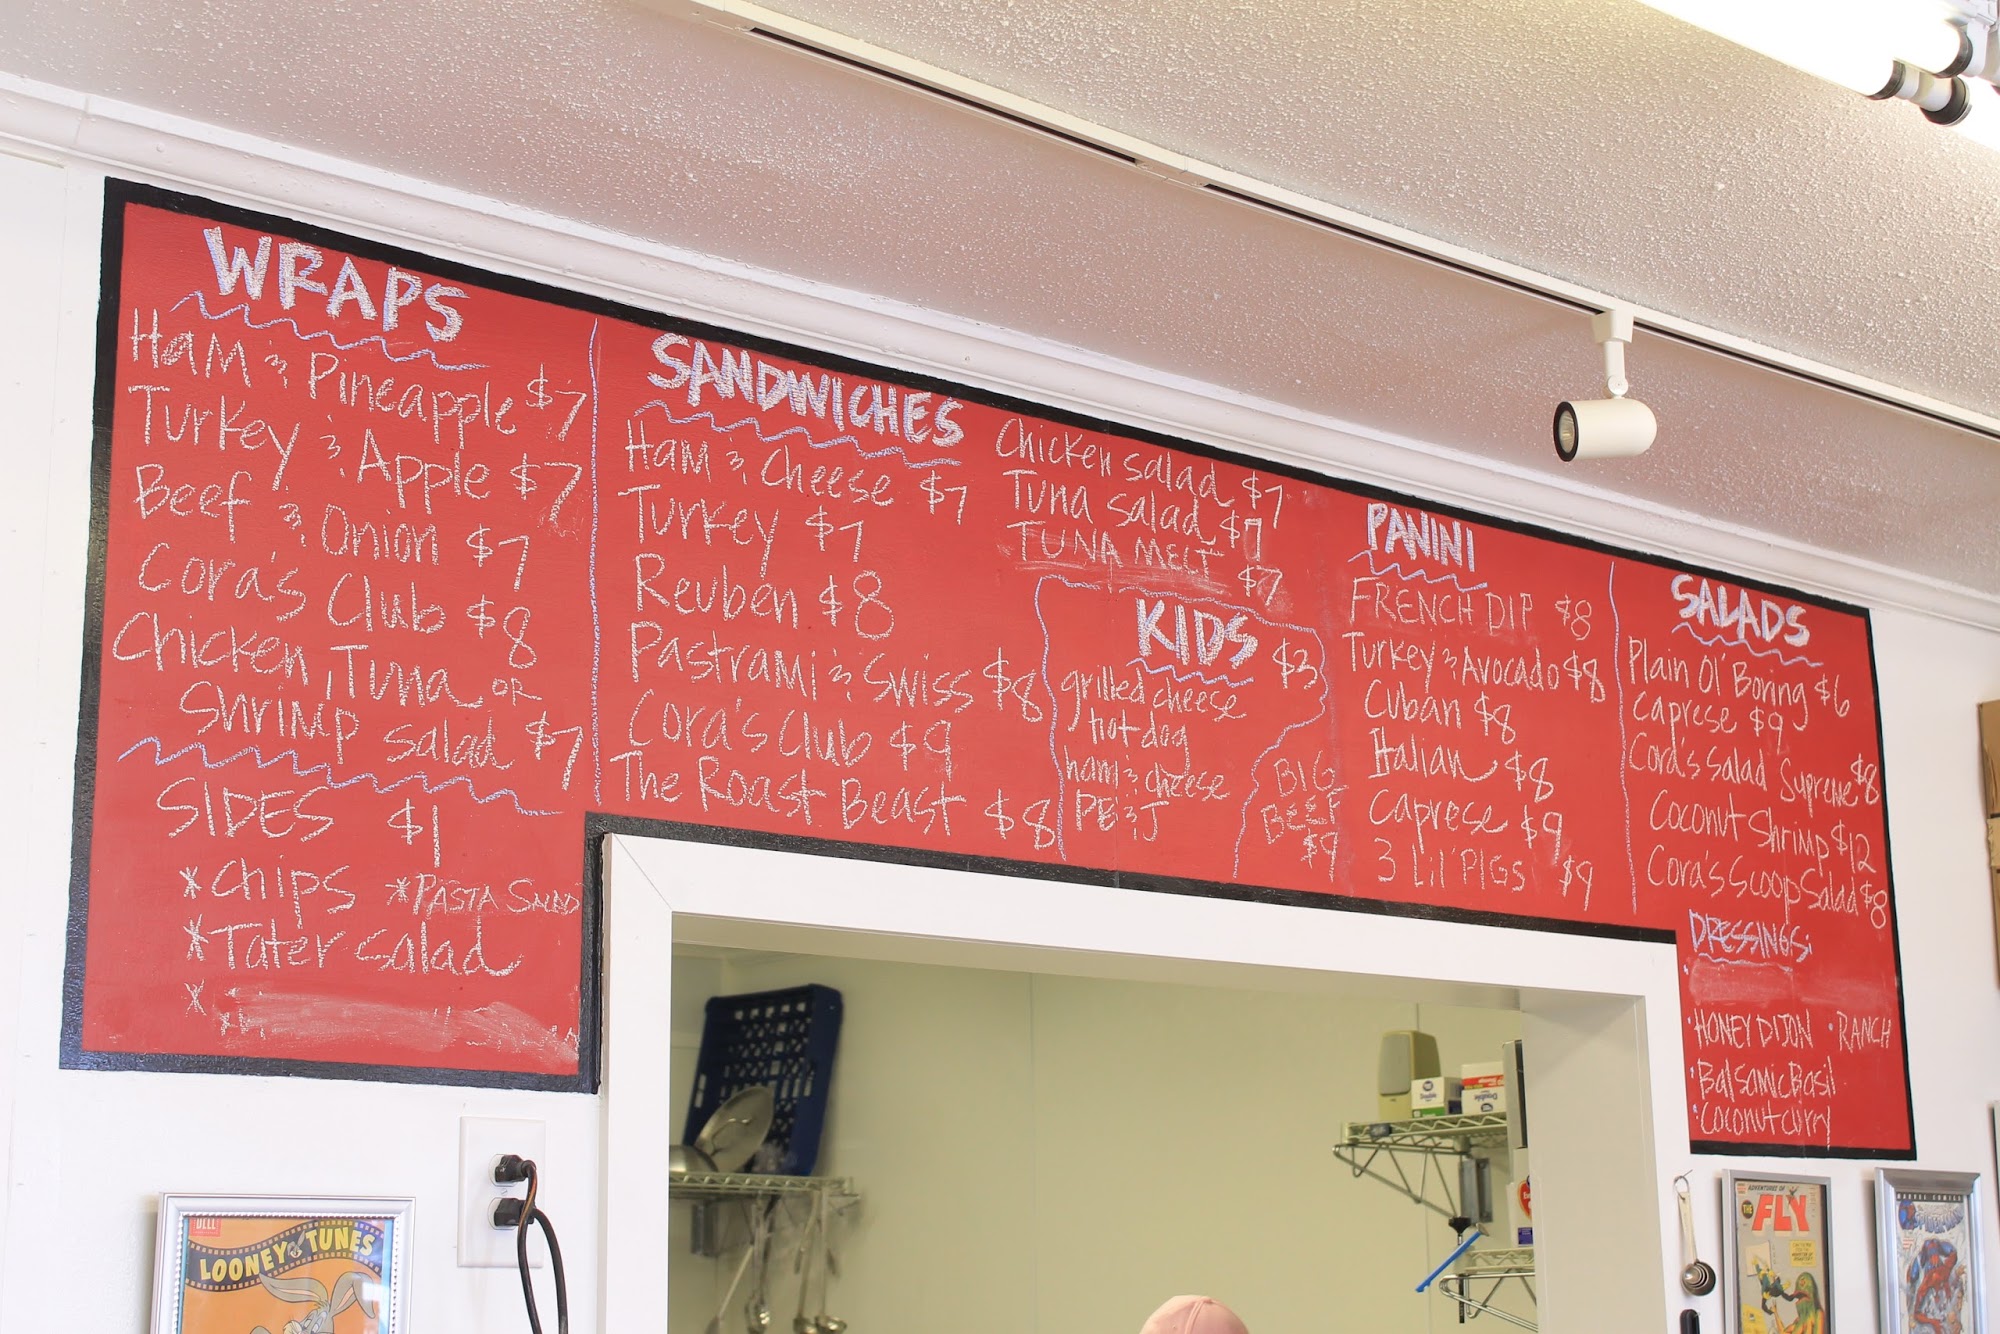 WRAPS
Ham & Pineapple $7
Turkey & Apple $7
Beef & Onion $7
Cora's Club $8
Chicken, Tuna OR
Shrimp salad $7
SIDES $1
*Chips *PASTA SALAD
*Tater salad
*
SANDWICHES
Ham & Cheese $7
Turkey $7
Reuben $8
Pastrami & Swiss $8
Cora's Club $9
The Roast Beast $8
Chicken salad $7
Tuna salad $7
TUNA MELT $7
KIDS $3
grilled cheese
hot dog
ham & cheese
PB & J
BIG
BEEF
$9
PANINI
FRENCH DIP $8
Turkey & Avocado $8
Cuban $8
Italian $8
Caprese $9
3 Lil' PIGS $9
SALADS
Plain Ol' Boring $6
Caprese $9
Cora's Salad Supreme $8
Coconut Shrimp $12
Cora's Scoop Salad $8
DRESSINGS:
•HONEY DIJON •RANCH
•Balsamic Basil
•Coconut curry
DELL
LOONEY TUNES
ADVENTURES OF
THE FLY
MARVEL COMICS